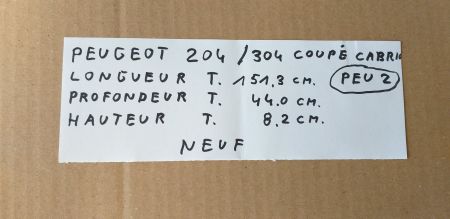 PEUGEOT 204 / 304 COUPÉ CABRI
LONGUEUR T. 151,3 CM. PEU 2
PROFONDEUR T. 44.0 CM.
HAUTEUR T. 8,2 CM.
NEUF